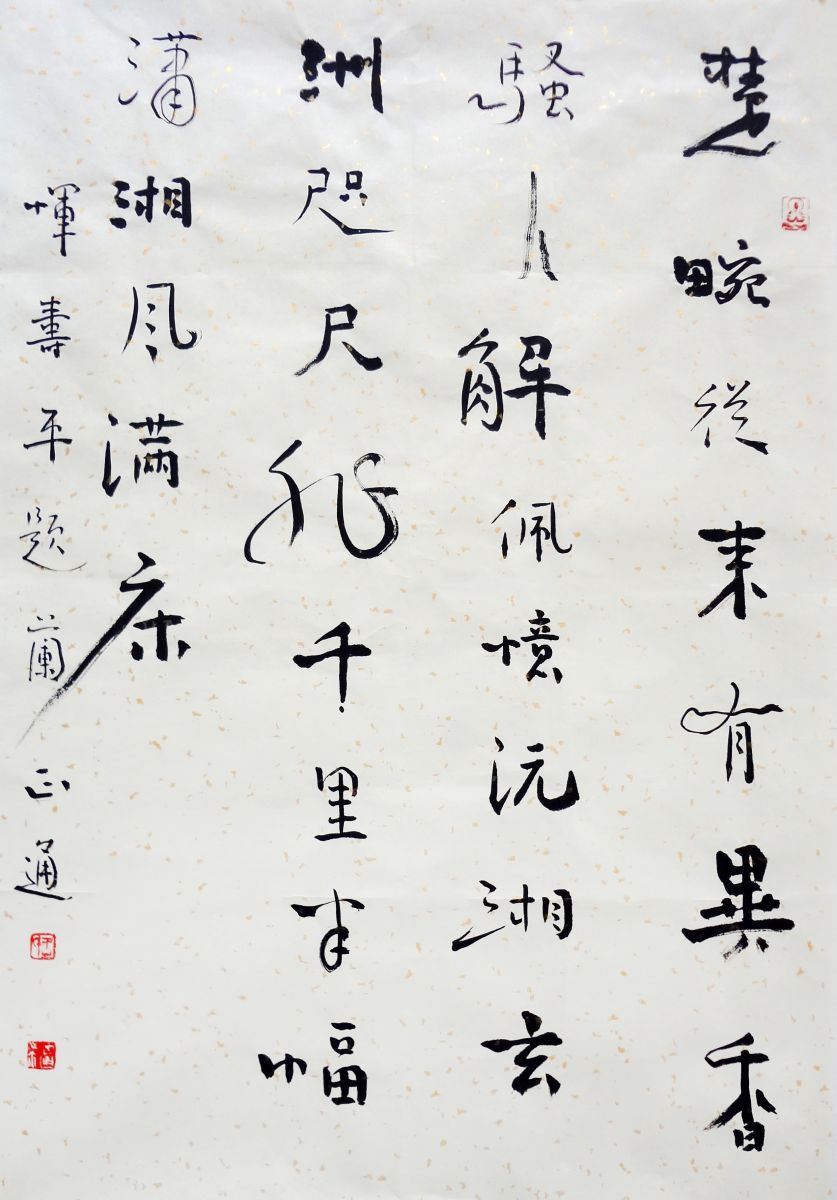 楚畹從来有異香
騷人解佩憶沅湘玄
洲咫尺非千里半幅
瀟湘风满床
惲壽平题蘭 正通